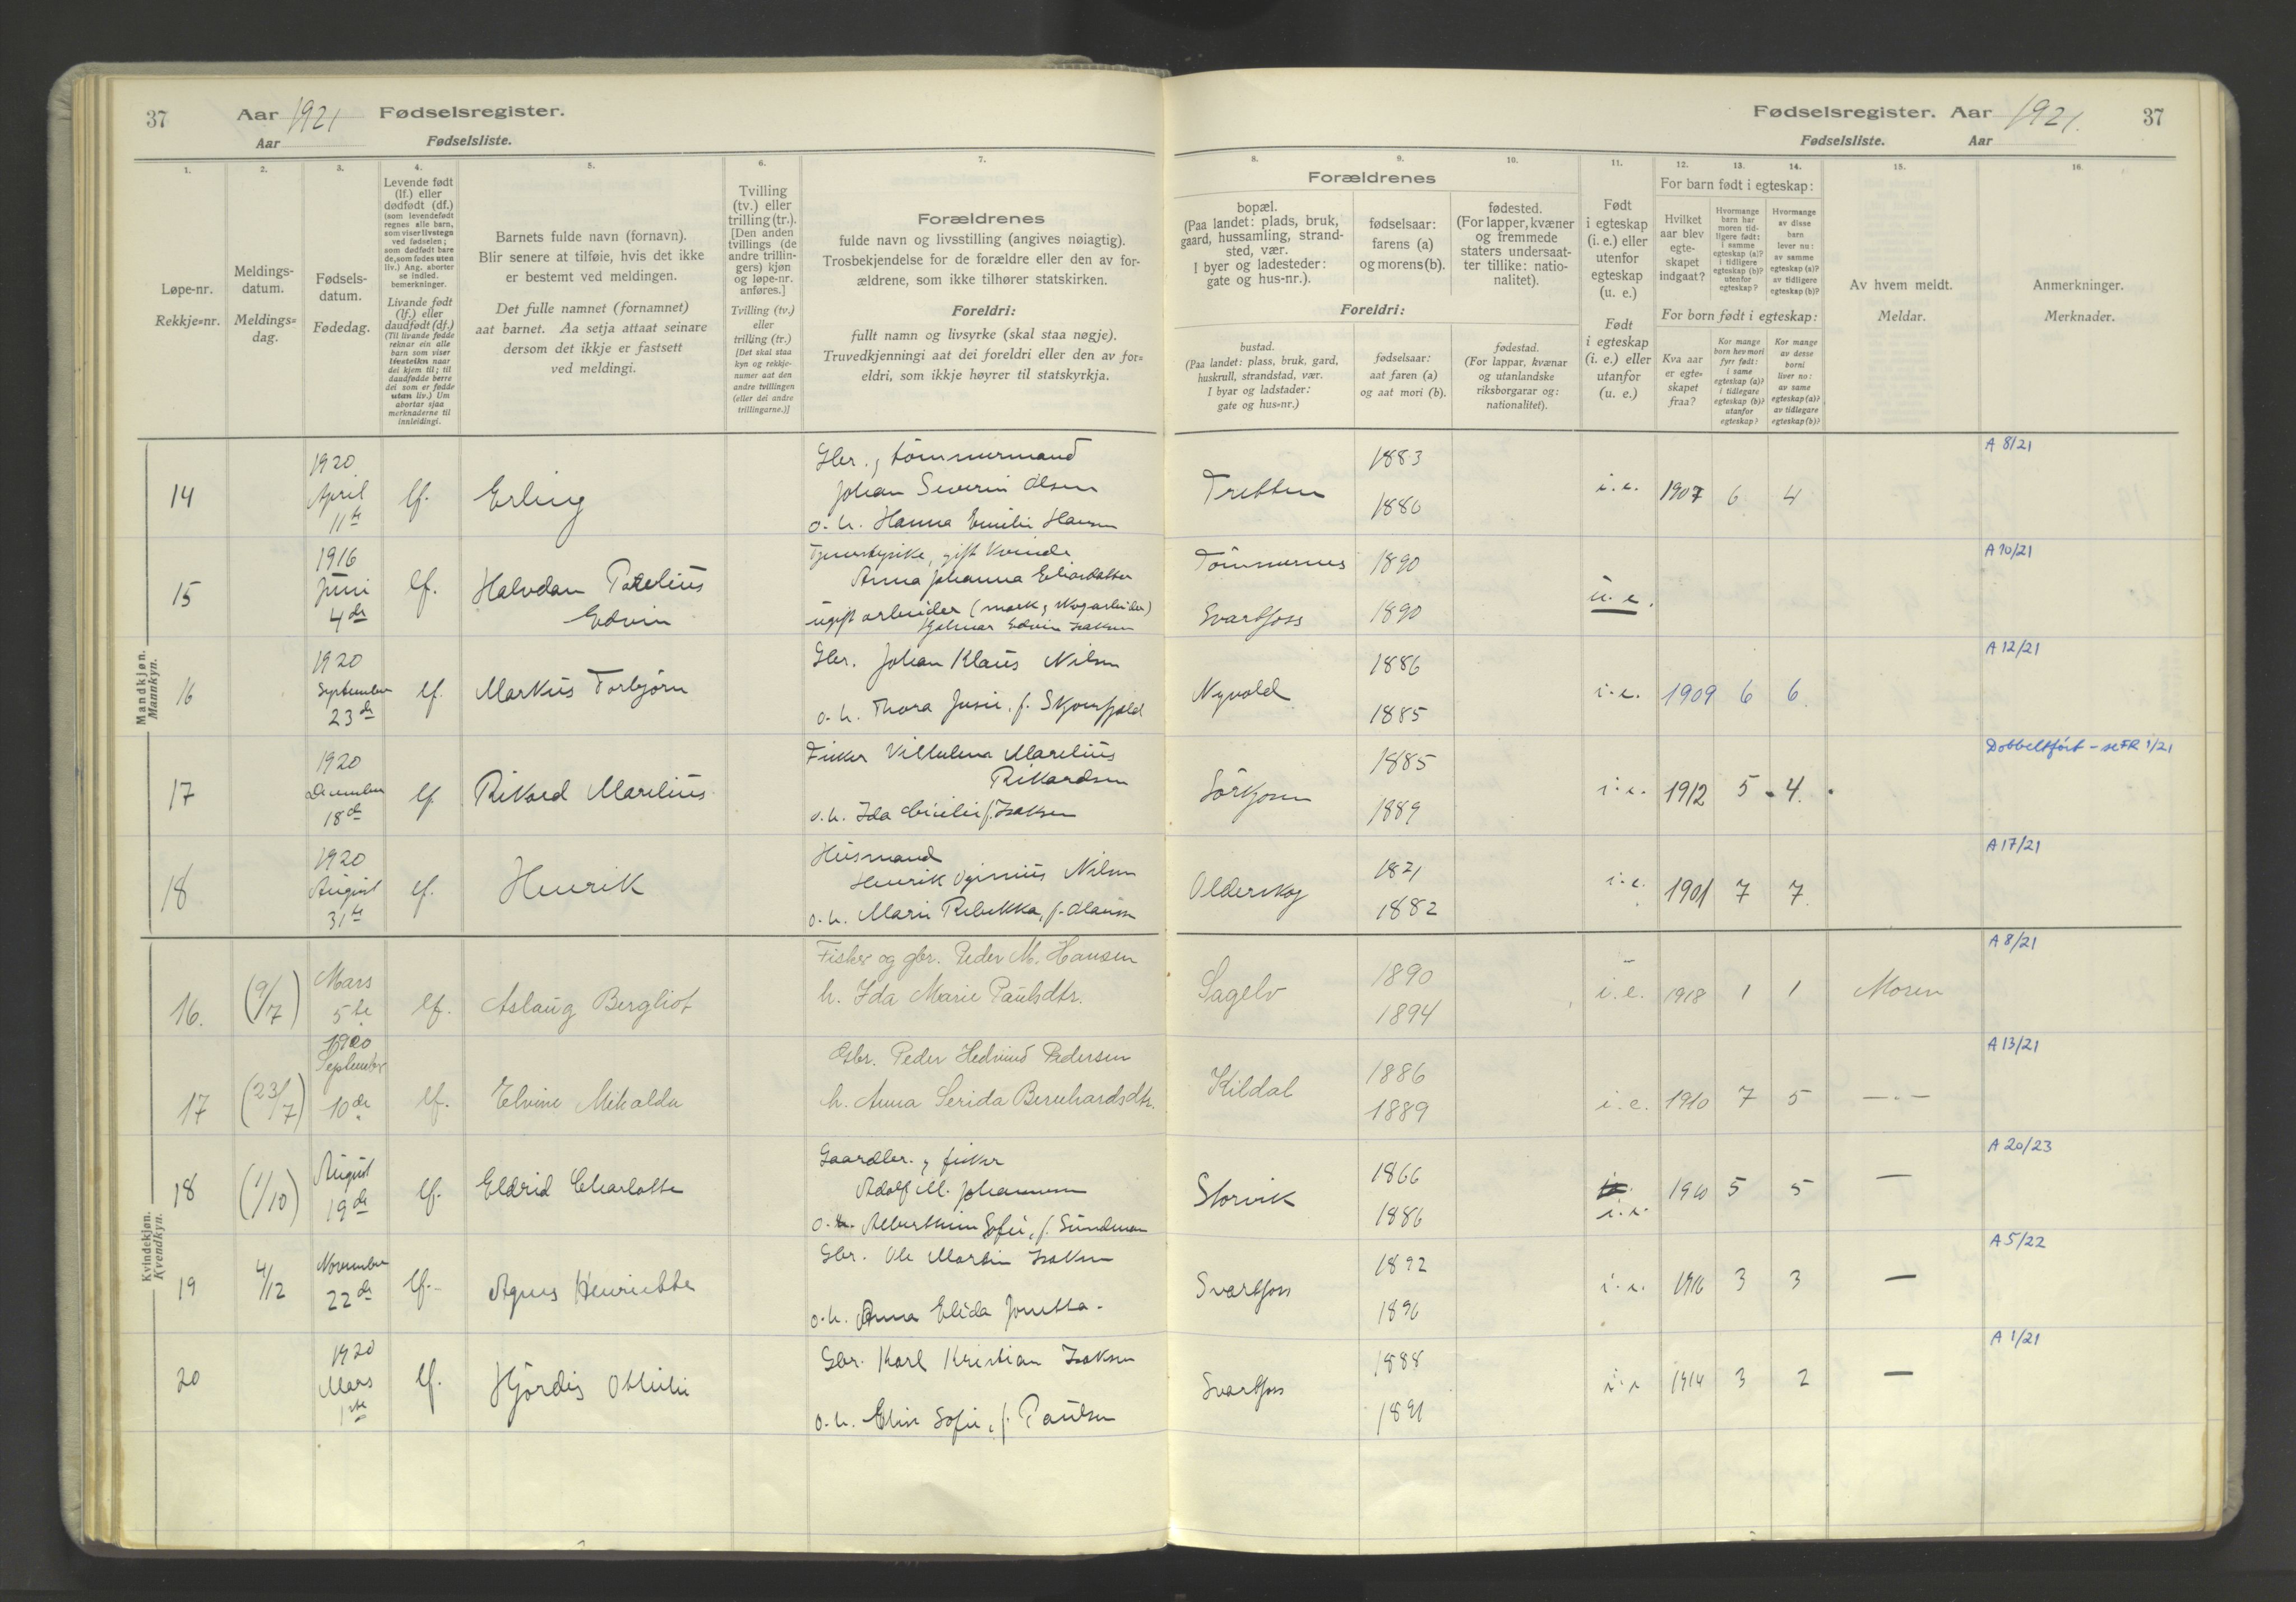 37
Aar 1921 Fødselsregister.
Aar Fødselsliste.
1. 2. 3. 4. 5. 6. 7.
Løpe-nr.
Rekkje=nr.
Meldings-
datum.
Meldings=
dag.
Fødsels-
datum.
Fødedag.
Levende født
(lf.) eller
dødfødt (df.)
(som levendefødt
regnes alle barn,
som viser livstegn
ved fødselen;
som dødfødt bare
de, som fødes uten
liv.) Ang. aborter
se indled.
bemerkninger.
Livande født
(lf.) eller
daudfødt (df.)
(Til livande fødde
reknar ein alle
barn som viser
livsteikn naar
dei kjem til; til
daudfødde berre
dei som er fødde
utan liv.) Um
abortar sjaa
merknaderne til
innleidingi.
Barnets fulde navn (fornavn).
Blir senere at tilføie, hvis det ikke
er bestemt ved meldingen.
Det fulle namnet (fornamnet)
aat barnet. Aa setja attaat seinare
dersom det ikkje er fastsett
ved meldingi.
Tvilling
(tv.) eller
trilling (tr.).
[Den anden
tvillings (de
andre trillin-
gers) kjøn
og løpe-nr.
anføres.]
Tvilling (tv.)
eller
trilling (tr.)
[Det skal staa
kyn og rekkje-
numer aat den
andre tvillingen
(eller dei andre
trillingarne.)]
Forældrenes
fulde navn og livsstilling (angives nøiagtig).
Trosbekjendelse for de forældre eller den av for-
ældrene, som ikke tilhører statskirken.
Foreldri:
fullt namn og livsyrke (skal staa nøgje).
Truvedkjenningi aat dei foreldri eller den av for=
eldri, som ikkje høyrer til statskyrkja.
Mandkjøn.
Mannkyn.
14
1920
April
11te
lf.
Erling
Gbr. , tømmermand
Johan Severin Olsen
o. h. Hanna Emilie Hansen
15
1916
Juni
4de
lf.
Halvdan
Edvin
Tjenestepike, gift kvinde
Anna Johanna
ugift arbeider
Hjalmar Edvin Isaksen
16
1920
September
23de
lf.
Markus Torbjørn
Gbr. Johan Klaus Nilsen
o. h. Thora
17
1920
December
18de
lf
Rikard Marelius
Fisker Marelius
Rikardsen
o. h. Ida f. Isaksen
18
1920
August
31te
lf.
Henrik
Husmand
Henrik Nilsen
o. h. Marie Rebekka, f.
Kvindekjøn.
Kvendkyn.
16.
(9/7)
Mars
5te
lf.
Aslaug Bergliot
Fisker og gbr. Peder M. Hansen
h. Ida Marie Paulsdtr.
17
(23/7)
1920
September
10de
lf.
Elvine Mikalda
Gbr. Peder Hedvind Pedersen
h. Anna Serida Bernhardsdtr.
18
(1/10)
August
19de
lf.
Eldrid Charlotte
Gaardbr. , fisker
Adolf M. Johannesen
o. h. Sofie, f. Sundman
19
4/12
November
22de
lf.
Agnes Henriette
Gbr. Ole Martin Isaksen
o. h. Anna Elida Jonetta
20
1920
Mars
1ste
lf.
Hjørdis Ottilie
Gbr. Karl Kristian Isaksen
o. h. Elise Sofie, f. Paulsen
Fødselsregister. Aar 1921. 37
Fødselsliste. Aar
8. 9. 10. 11. 12. 13. 14. 15. 16.
Forældrenes
bopæl.
(Paa landet: plads, bruk,
gaard, hussamling, strand-
sted, vær.
I byer og ladesteder:
gate og hus-nr.).
fødselsaar:
farens (a)
og morens (b).
fødested.
(For lapper, kvæner
og fremmede
staters undersaat-
ter tillike: natio-
nalitet).
Foreldri:
bustad.
(Paa landet: plass, bruk, gard,
huskrull, strandstad, vær.
I byar og ladstader:
gate og hus=nr.)
fødselsaar:
aat faren (a)
og aat mori (b).
fødestad.
(For lappar, kvænar
og utanlandske
riksborgarar og:
nationalitet).
Født
i egteskap
(i. e.) eller
utenfor
egteskap
(u. e.)
Født
i egteskap
(i. e.) eller
utanfor
(u. e.)
For barn født i egteskap:
Hvilket
aar blev
egte-
skapet
indgaat?
Hvormange
barn har
moren tid-
ligere født:
i samme
egteskap (a)?
i tidligere
egteskap (b)?
utenfor
egteskap?
Hvormange
av disse
barn
lever nu:
av samme
egteskap (a)?
av tidligere
egteskap (b)?
For born født i egteskap:
Kva aar
er egte=
skapet
fraa?
Kor mange
born hev mori
fyrr født:
i same
egteskap (a)?
i tidlegare
egteskap (b)?
utanfor
egteskap?
Kor mange
av desse
borni
liver no:
av same
egteskap (a)?
av tidlegare
egteskap (b)?
Av hvem meldt.
Meldar.
Anmerkninger.
Merknader.
Tretten
1883
1886
i. e. 1907 6 4
A 8/21
Tømmernes 1890
Svartfoss 1890
u. e.
A 10/21
Nyvold
1886
1885
i. e. 1909 6 6
A 12/21
Sørkjosen
1885
1889
i. e. 1912 5 4.
Dobbeltført - se FR 1/21
Olderskog
1882
i. e. 1901 7 7
A 17/21
Sagelv
1890
1894
i. e. 1918 1 1 Moren
A 8/21
Kildal
1886
1889
i. e. 1910 7 5 — . —
A 13/21
Storvik
1866
1886
i. e. 1910 5 5 —
A 20/23
Svartfoss
1892
1896
i. e. 1916 3 3 —
A 5/22
Svartfoss
1888
1891
i. e 1914 3 2 —
A 1/21